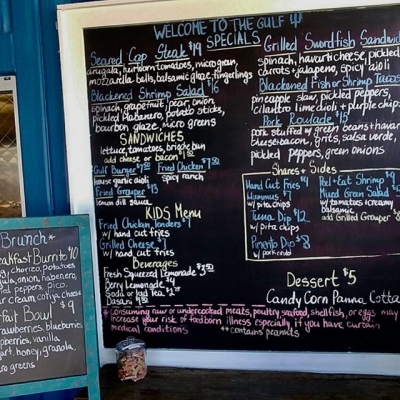 WELCOME TO THE GULF
SPECIALS
Seared Cap Steak $19
arugala, heirloom tomatoes, micro green,
mozzarella balls, balsamic glaze, fingerlings
Blackened Shrimp Salad $16
spinach, grapefruit, pear, onion,
pickled habanero, potato sticks,
bourbon glaze, micro greens
SANDWICHES
lettuce, tomatoes, brioche bun
add cheese or bacon $1
Gulf Burger
house garlic dill
Fried Chicken
spicy ranch
Fried Grouper $13
lemon dill sauce
KIDS Menu
Fried Chicken Tenders
w/ hand cut fries
Grilled Cheese
w/ hand cut fries
Beverages
Fresh Squeezed Lemonade
Berry Lemonade $4
Soda or Iced Tea
Dasani
Grilled Swordfish Sandwich
spinach, havarti cheese, pickled
carrots + jalapeno, spicy aioli
Blackened Fish or Shrimp Tacos
pineapple slaw, pickled peppers,
cilantro lime aioli + purple chips
Pork Roulade $15
pork stuffed w/ green beans + havarti
cheese + bacon, grits, salsa verde,
pickled peppers, green onions
Shares + Sides
Hand Cut Fries $4
Hummus
w/ pita chips
Tuna Dip $12
w/ pita chips
Pimento Dip $8
w/ pork rind
Peel + Eat Shrimp
Mixed Green Salad
w/ tomatoes + creamy
balsamic
add Grilled Grouper
Dessert $5
Candy Corn Panna Cotta
*consuming raw or undercooked meats, poultry, seafood, shellfish, or eggs may
increase your risk of foodborn illness especially if you have curtain
medical conditions
**contains peanuts
Brunch*
Breakfast Burrito $10
chorizo, potatoes,
onion, habanero,
peppers, pico,
sour cream, cotija cheese
Parfait Bowl $9
strawberries, blueberries,
raspberries, vanilla
yogurt, honey, granola,
micro greens